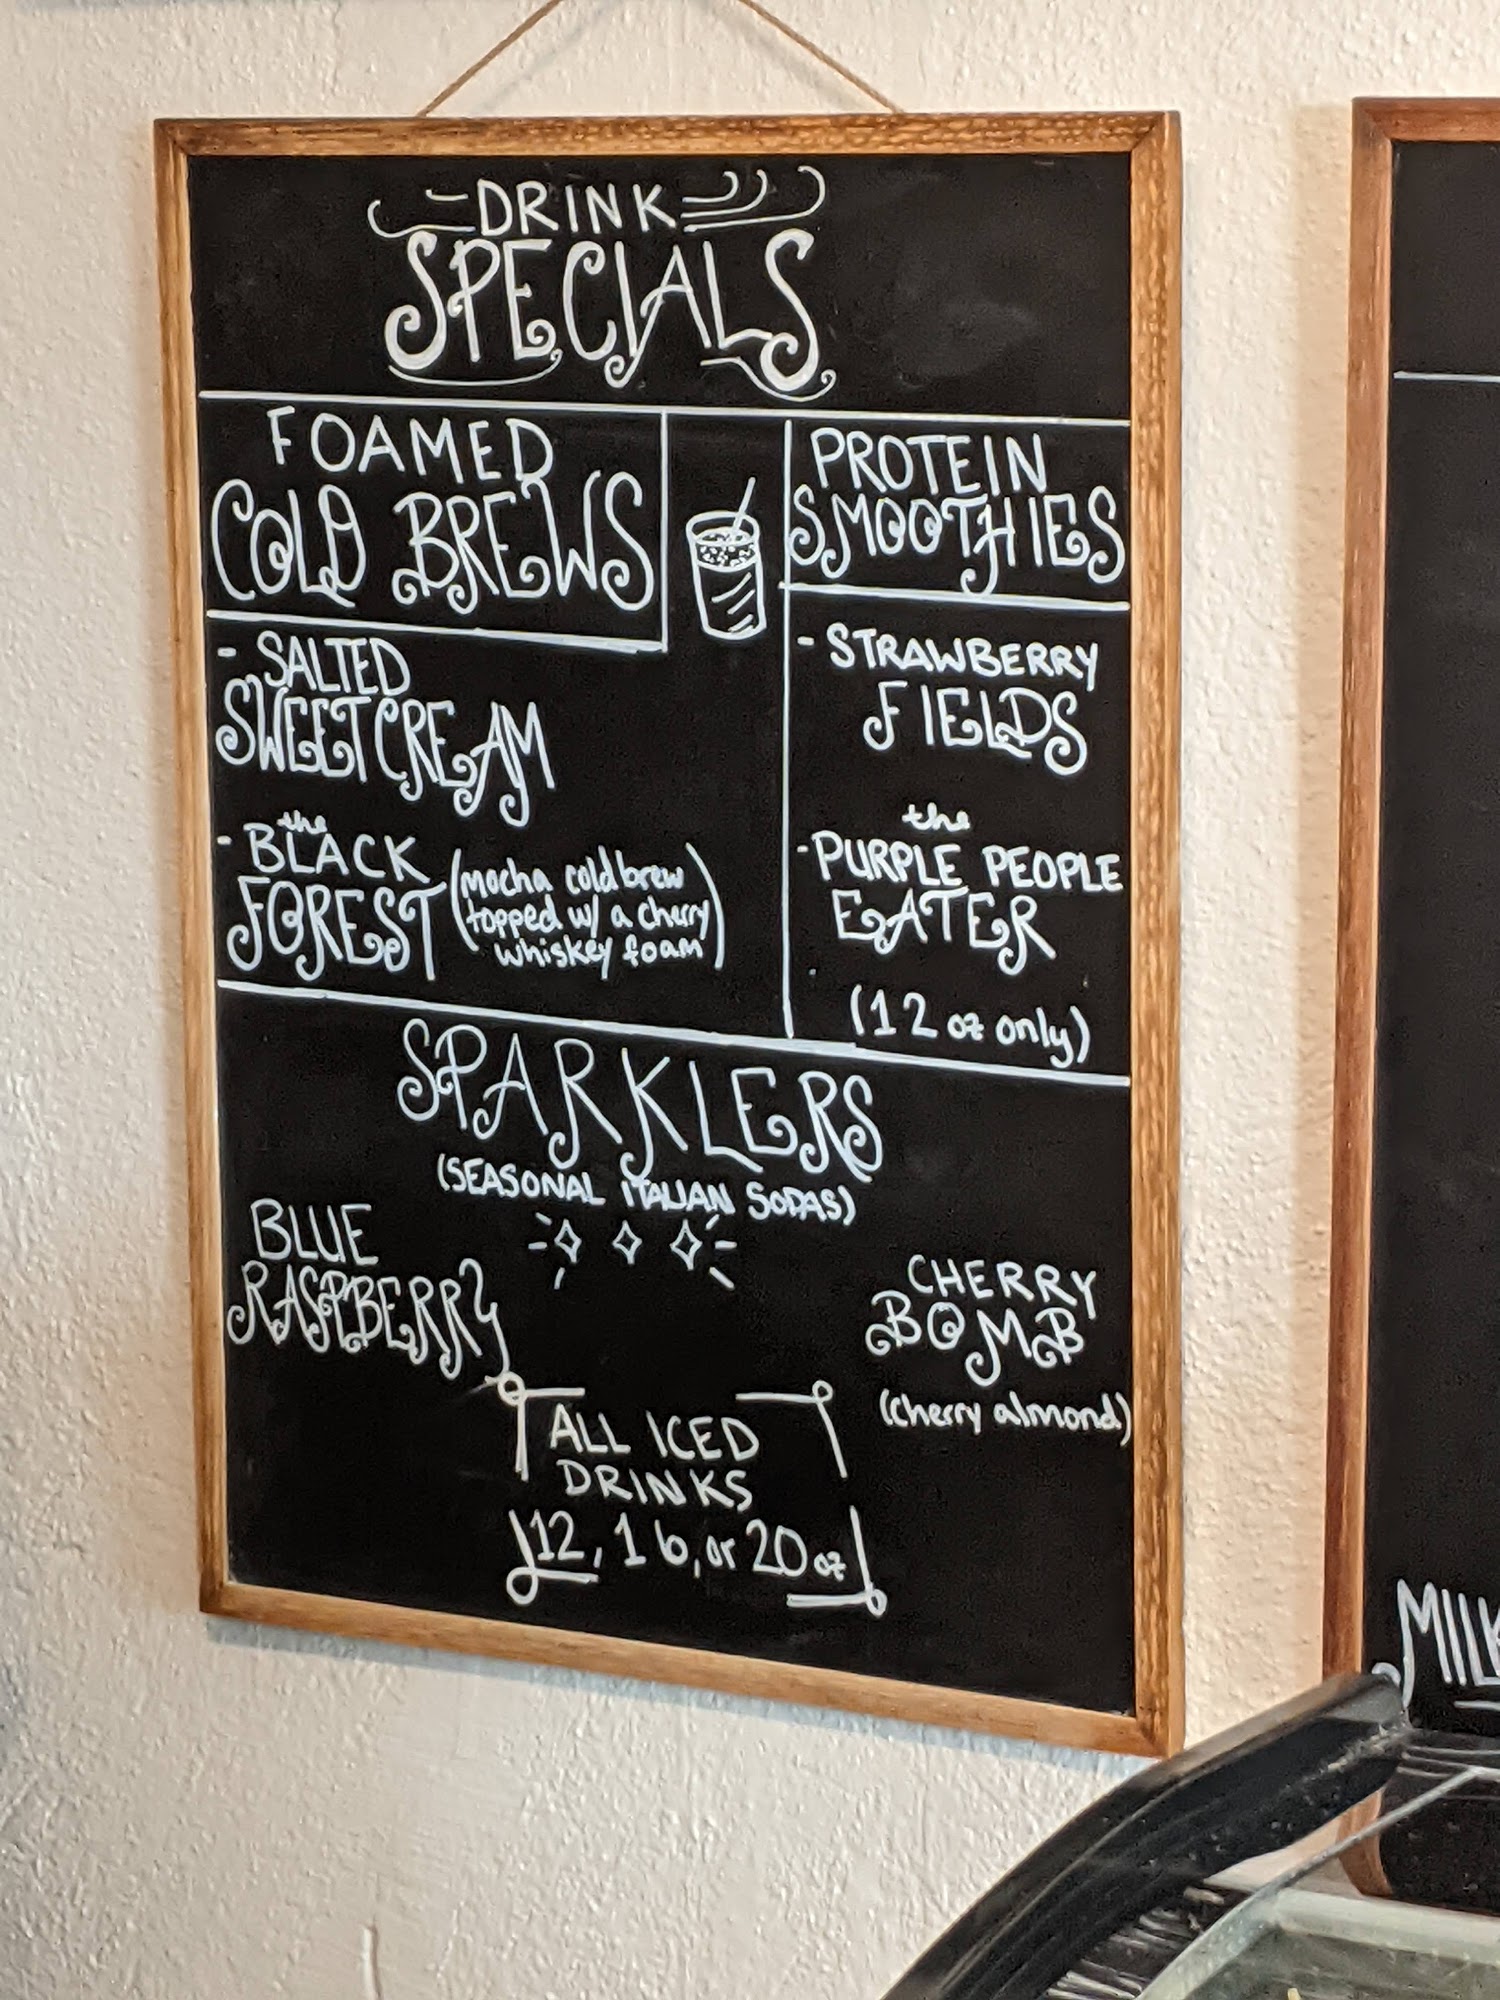 DRINK
SPECIALS
FOAMED
COLD BREWS
- SALTED
SWEET CREAM
- the
BLACK
FOREST
(mocha cold brew
topped w/ a cherry
whiskey foam)
PROTEIN
SMOOTHIES
- STRAWBERRY
FIELDS
the
- PURPLE PEOPLE
EATER
(12 oz only)
SPARKLERS
(SEASONAL ITALIAN SODAS)
BLUE
RASPBERRY
CHERRY
BOMB
(cherry almond)
ALL ICED
DRINKS
12, 16, or 20 oz